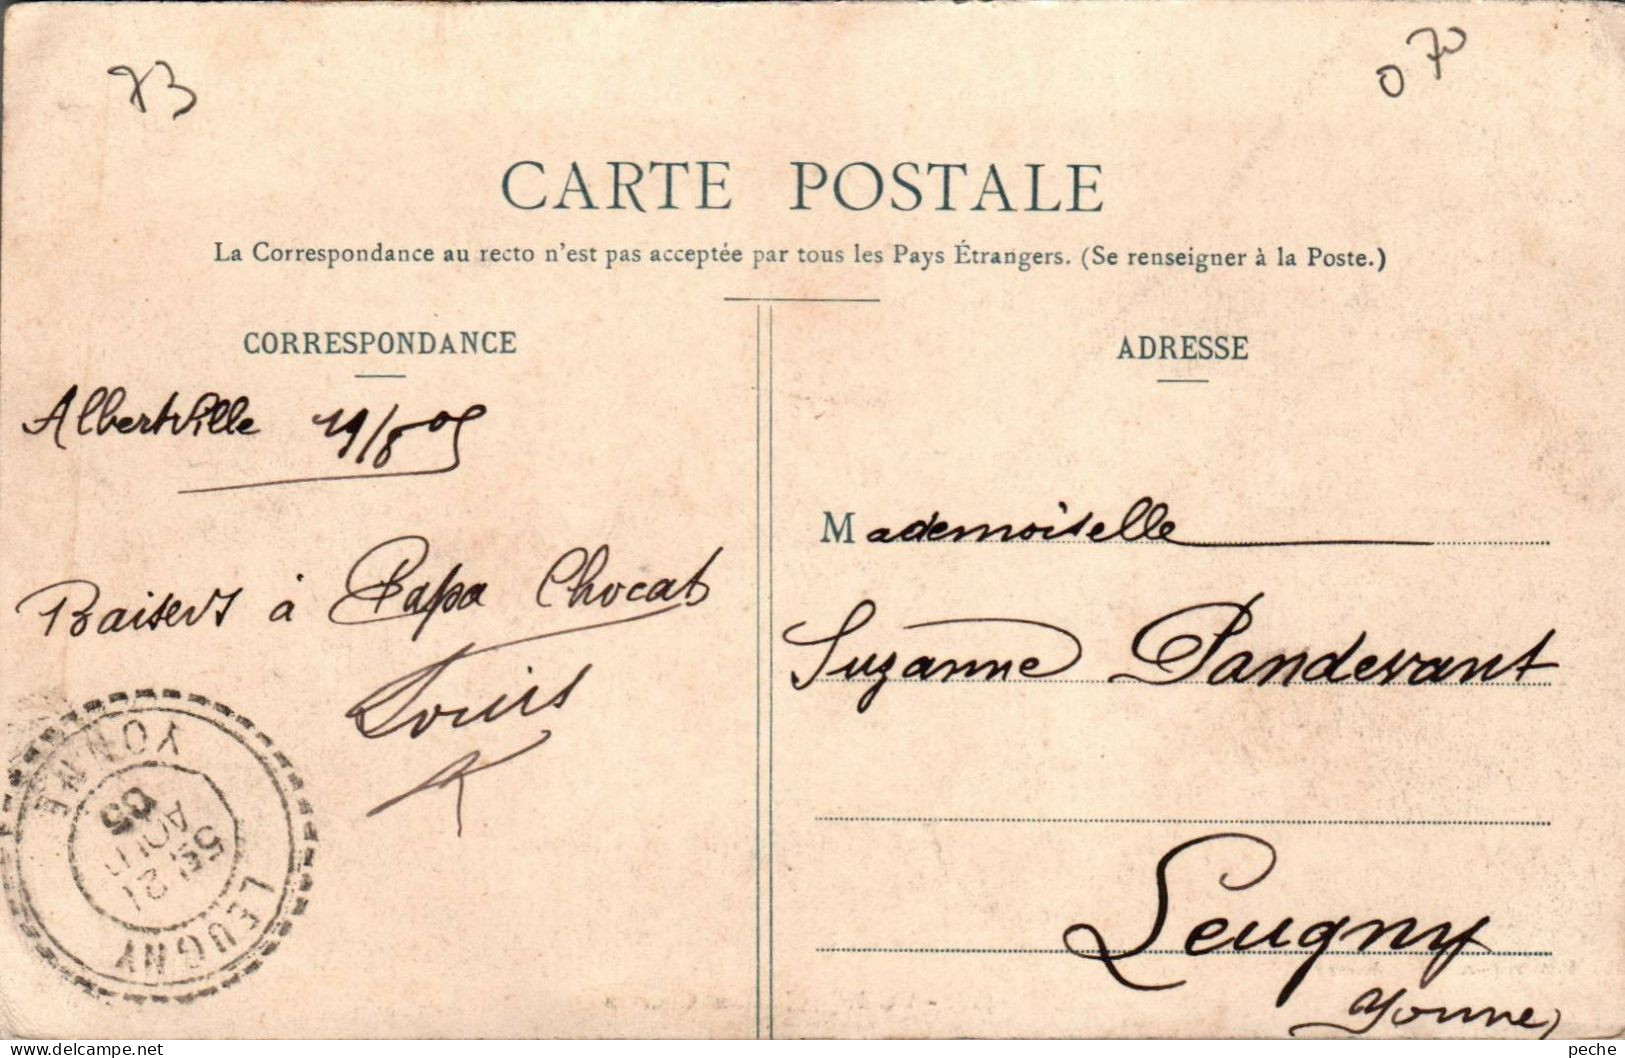 73
0 70
CARTE POSTALE
La Correspondance au recto n'est pas acceptée par tous les Pays Étrangers. (Se renseigner à la Poste.)
CORRESPONDANCE
Albertville 19/8 05
Baisers à Papa Chocat
Louis
ADRESSE
Mademoiselle
Suzanne Pandevant
Leugny
Yonne
LEUGNY
YONNE
5E
21
AOUT
05
peche